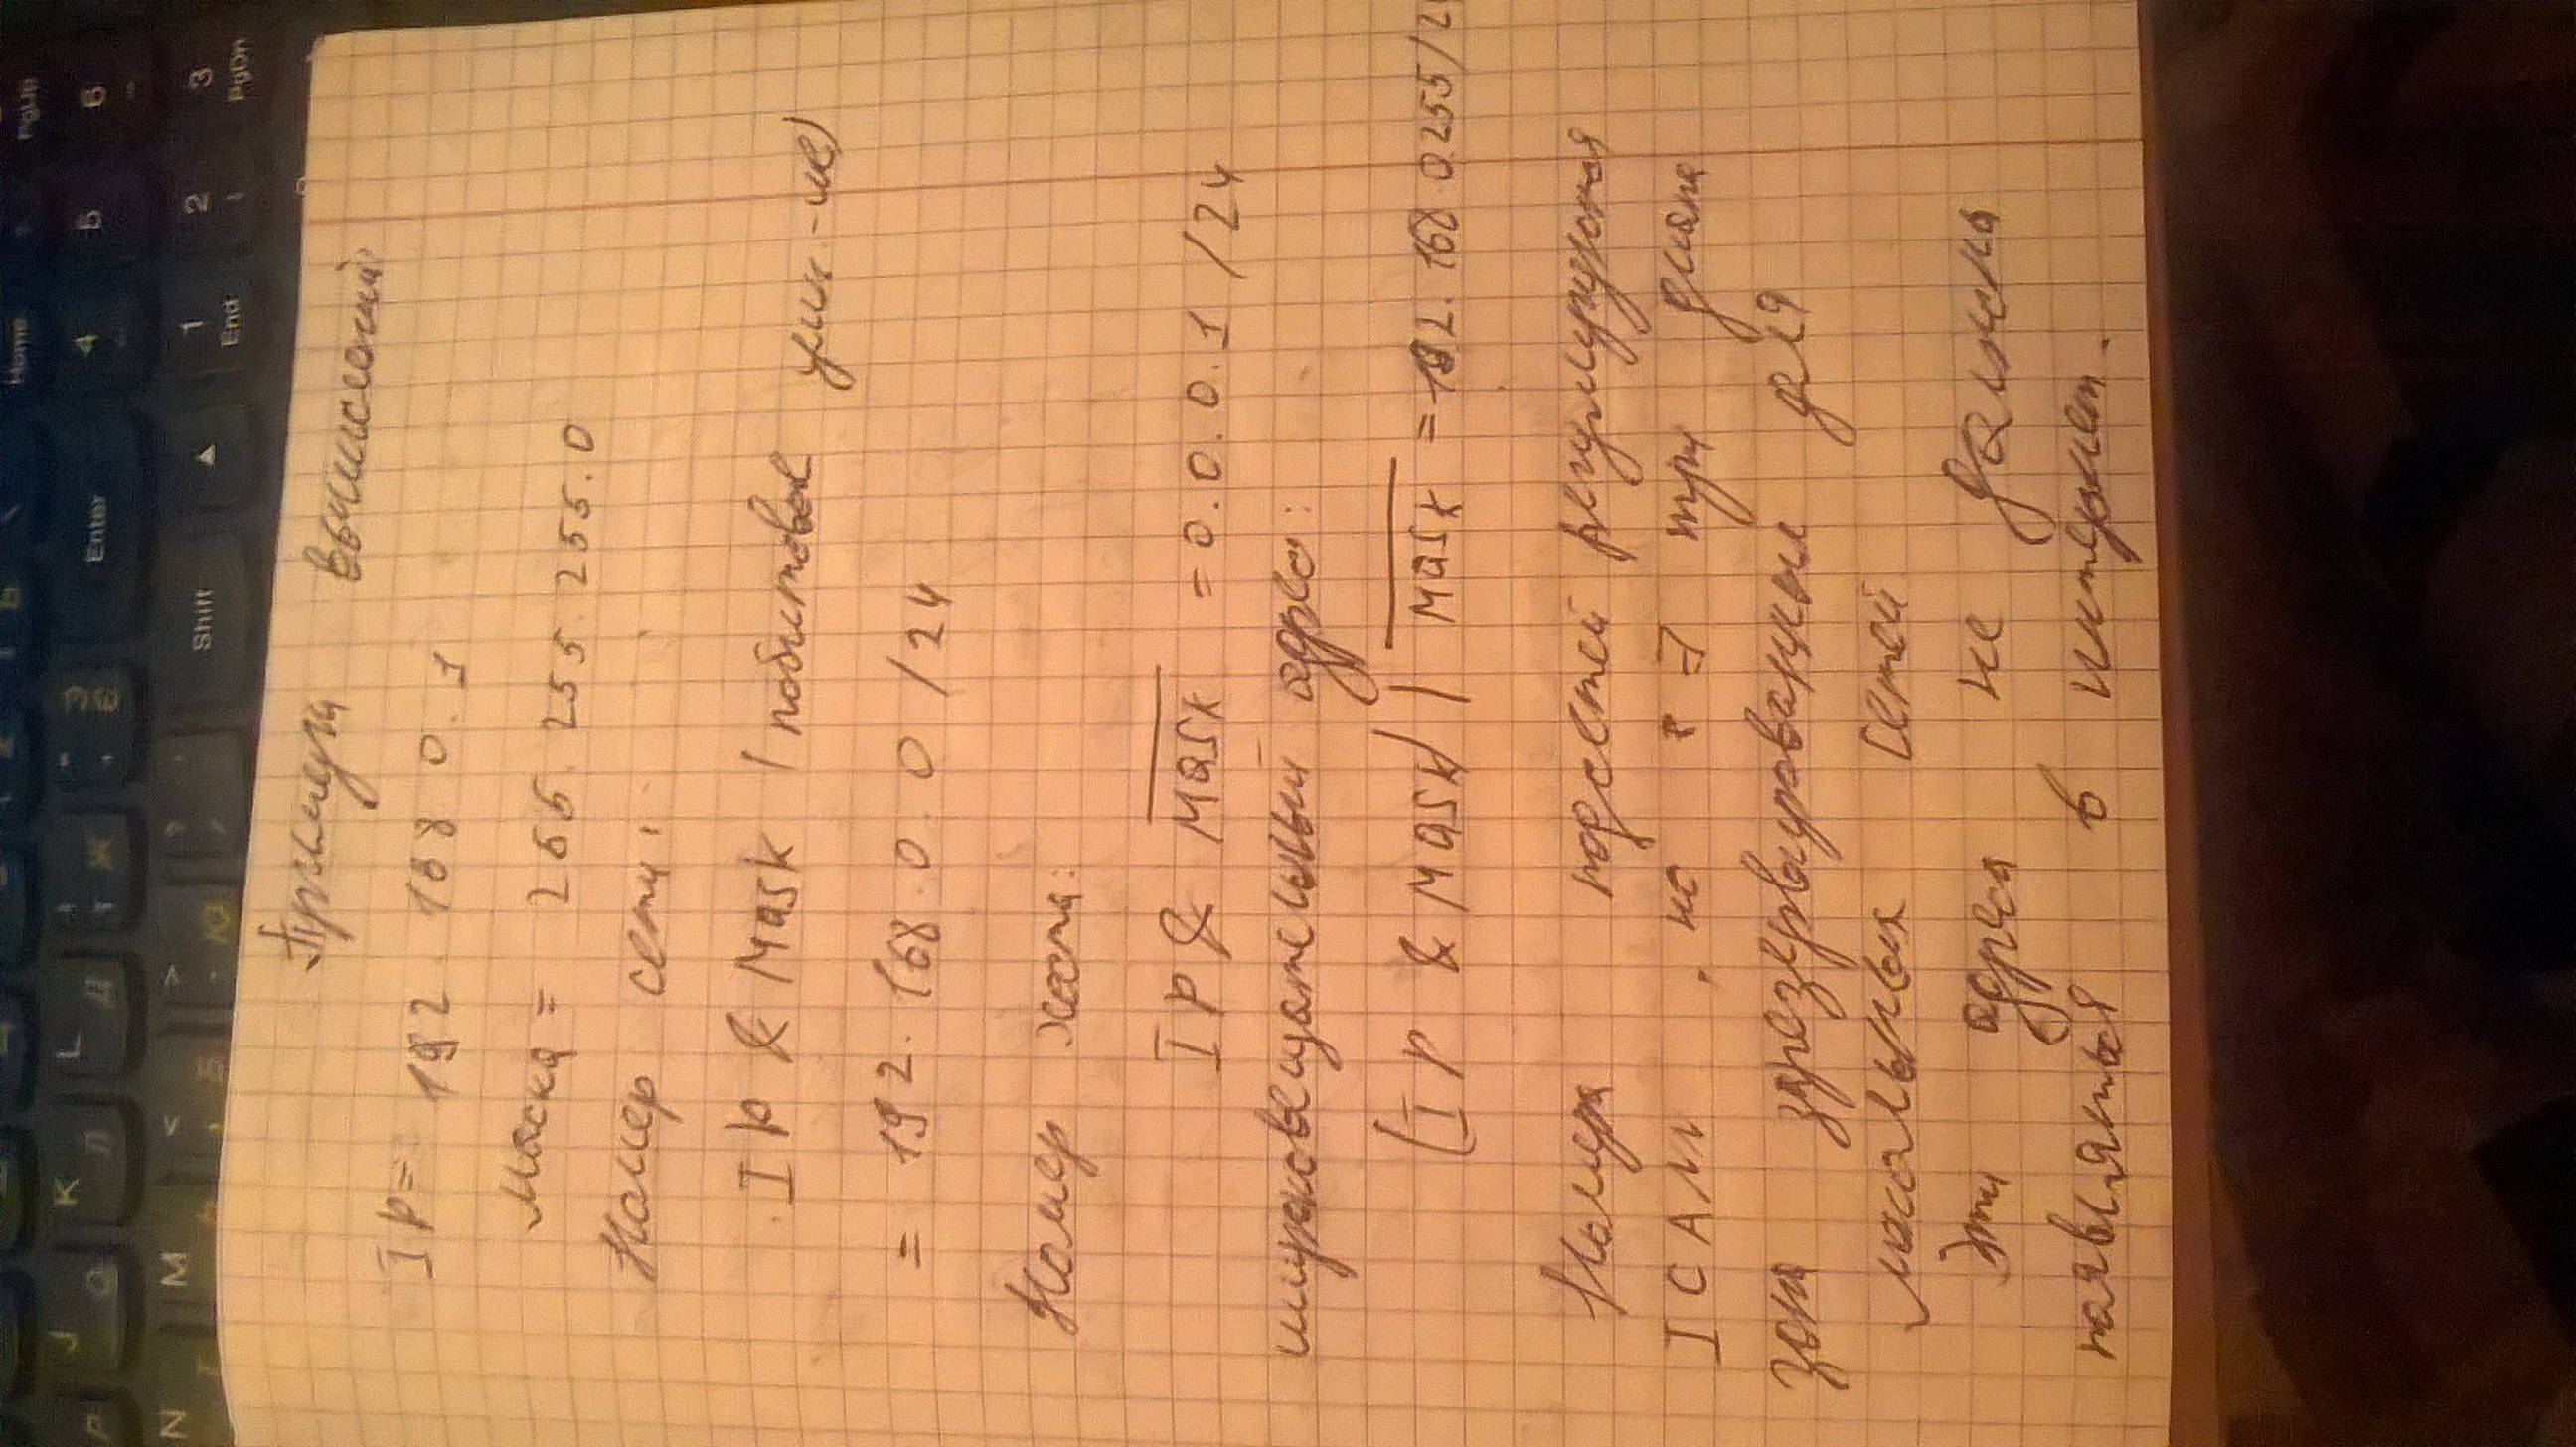 Home PgUp
J K L Д Ж Э Enter 4 5 6
N M < > Б Ю Shift ▲ 1 2 3
End PgDn
Примеры вычислений:
IP = 192.168.0.1
Маска = 255.255.255.0
Номер сети:
IP & Mask (побитовое умн-ие)
= 192.168.0.0 /24
Номер хоста:
IP & Mask = 0.0.0.1 /24
широковещательный адрес:
(IP & Mask) | Mask = 192.168.0.255/2
Номера подсетей регулируются
ICANN, но ∃ три диапа
зона зарезервированных для
локальных сетей
Эти адреса не должны
появляться в интернет.